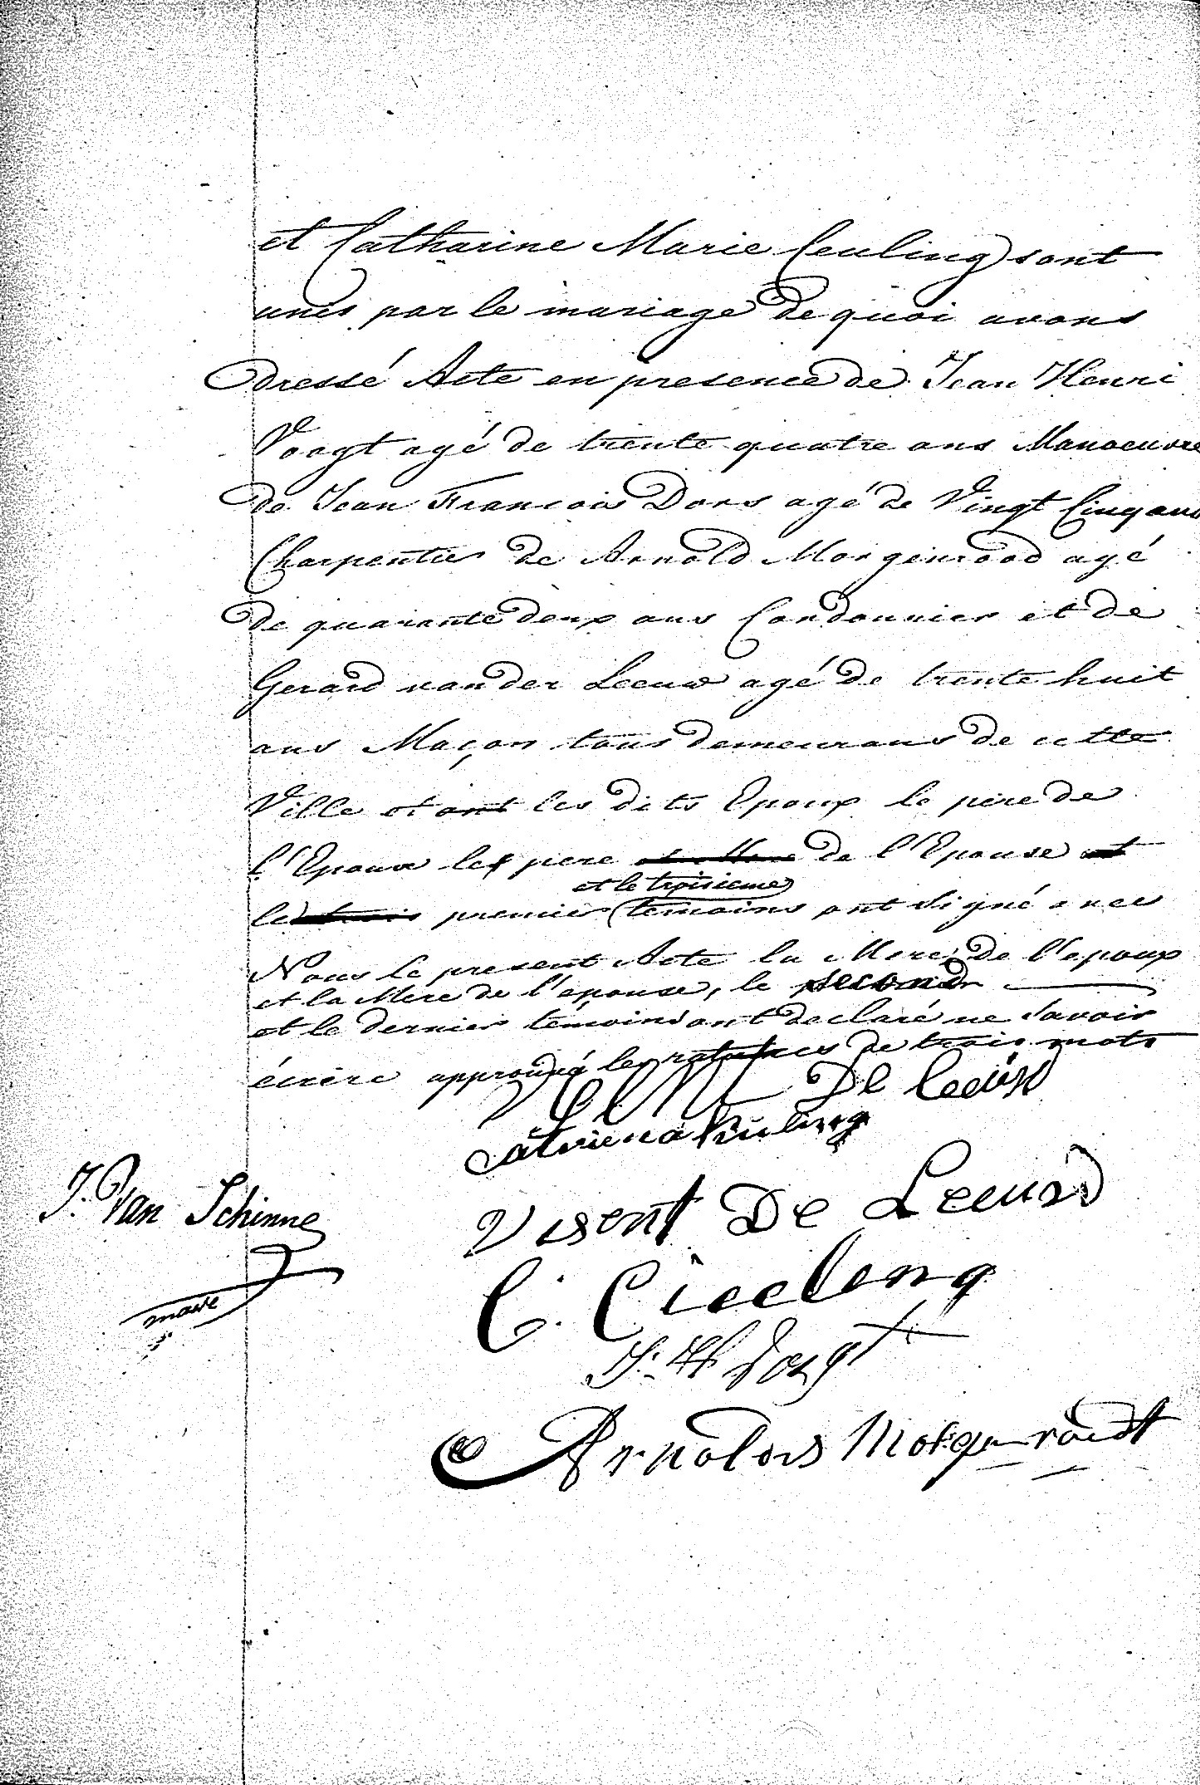 et Catharine Marie Ceuling sont
unis par le mariage de quoi avons
dressé Acte en presence de Jean Henri
Voogt agé de trente quatre ans Manoeuvre
de Jean Francois Dors agé de Vingt Cinq ans
Charpentier de Arnold Morgenrood agé
de quarante deux ans Cordonnier et de
Gerard van der Leeuw agé de trente huit
ans Maçon tous demeurans de cette
Ville etant les dits Epoux le pere de
l'Epoux les pere et Mere de l'Epouse et
et le troisieme
les trois premier temoins ont signé avec
Nous le present Acte la Mere de l'epoux
et la Mere de l'épouse, le second
et le dernier témoins ont declaré ne savoir
écrire approuvé les ratures de trois mots
De Leeuw
Catriena Kuling
J. Van Schinne
Visent De Leeuw
maire
C. Cieeleng
J. H Voogt
Arnoldus Morgenroodt